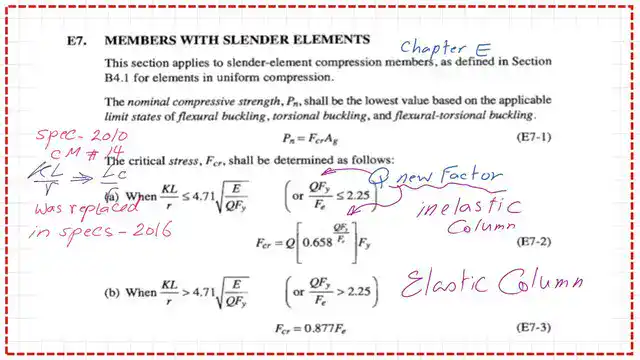 E7. MEMBERS WITH SLENDER ELEMENTS
Chapter E
This section applies to slender-element compression members, as defined in Section
B4.1 for elements in uniform compression.
The nominal compressive strength, Pn, shall be the lowest value based on the applicable
limit states of flexural buckling, torsional buckling, and flexural-torsional buckling.
spec-2010
Pn = FcrAg (E7-1)
CM # 14
The critical stress, Fcr, shall be determined as follows:
KL/r ⇒ Lc/r
Q new Factor
(a) When KL/r ≤ 4.71√(E/QFy) (or QFy/Fe ≤ 2.25)
was replaced
in specs - 2016
inelastic
Column
Fcr = Q[0.658^(QFy/Fe)]Fy (E7-2)
Elastic Column
(b) When KL/r > 4.71√(E/QFy) (or QFy/Fe > 2.25)
Fcr = 0.877Fe (E7-3)